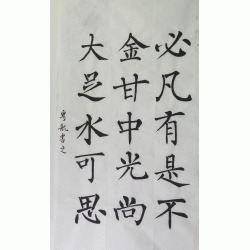 必凡有是不
金甘中光尚
大足水可思
粤龍書之